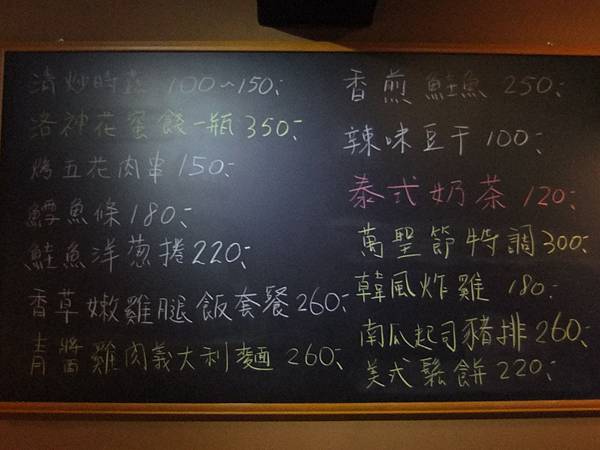 清炒時蔬 100~150.-
洛神花蜜餞一瓶 350.-
烤五花肉串 150.-
鱈魚條 180.-
鮭魚洋蔥捲 220.-
香草嫩雞腿飯套餐 260.-
青醬雞肉義大利麵 260.-
香煎鮭魚 250.-
辣味豆干 100.-
泰式奶茶 120.-
萬聖節特調 300.-
韓風炸雞 180.-
南瓜起司豬排 260.-
美式鬆餅 220.-